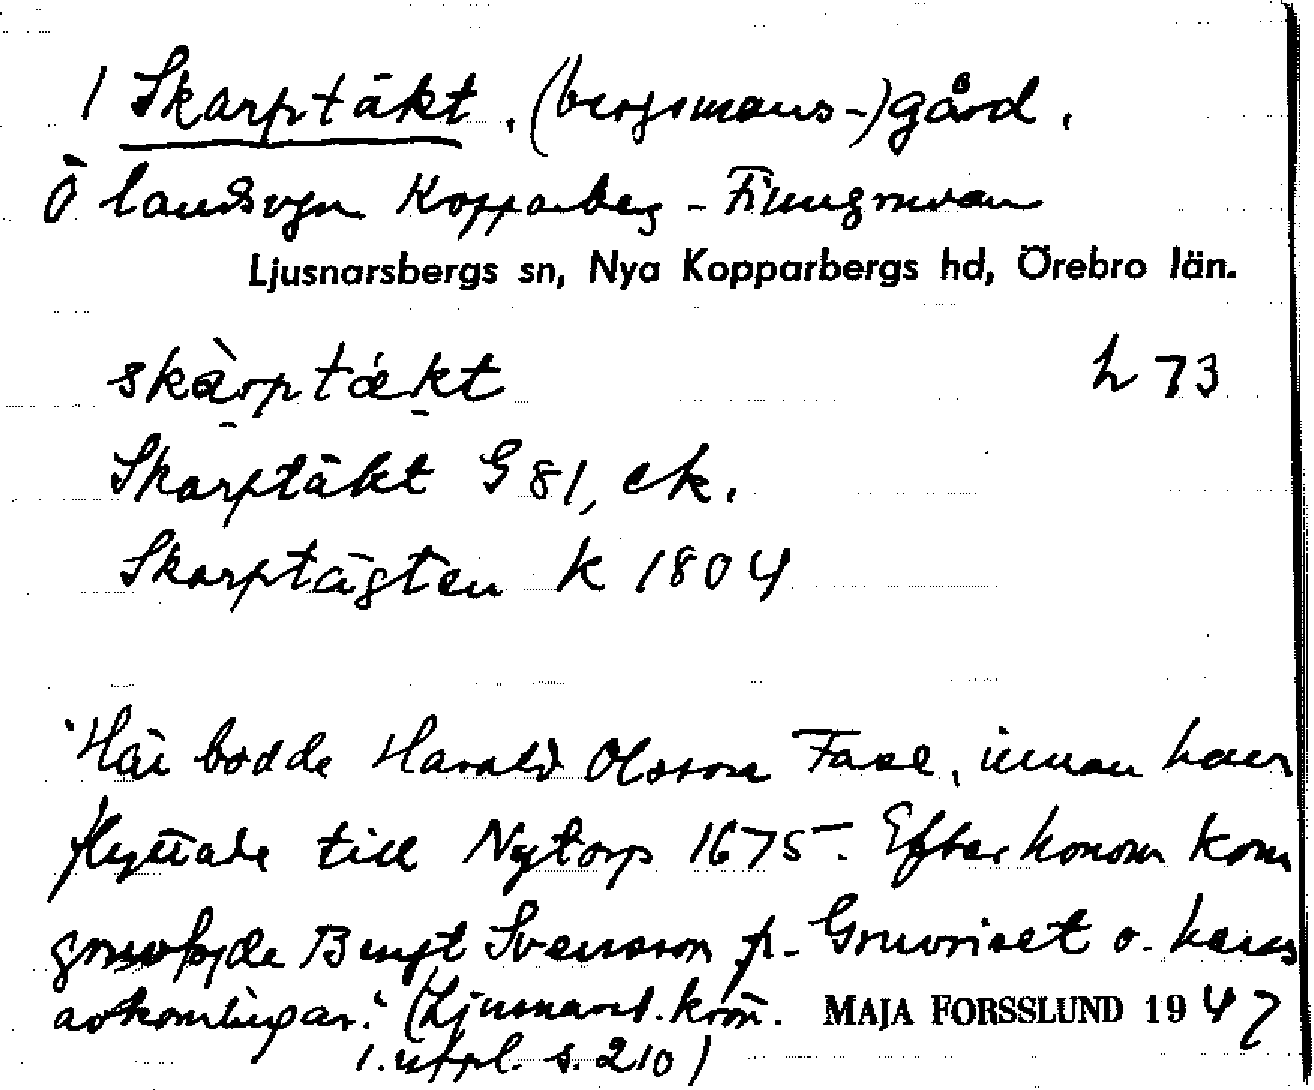 1 Skarptäkt, (bergsmans-)gård.
Ö landsvägen Kopparberg - Finngruvan
Ljusnarsbergs sn, Nya Kopparbergs hd, Örebro län.
skàrptǽkt h 73
Skarptäkt G 81, ek.
Skarptägten k 1804
"Här bodde Harald Olsson Fase, innan han
flyttade till Nytorp 1675. Efter honom kom
Bengt Svensson fr. Gruvriset o. hans
avkomlingar." (Ljusnarsb. krön.
1. uppl. s. 210)
MAJA FORSSLUND 1947